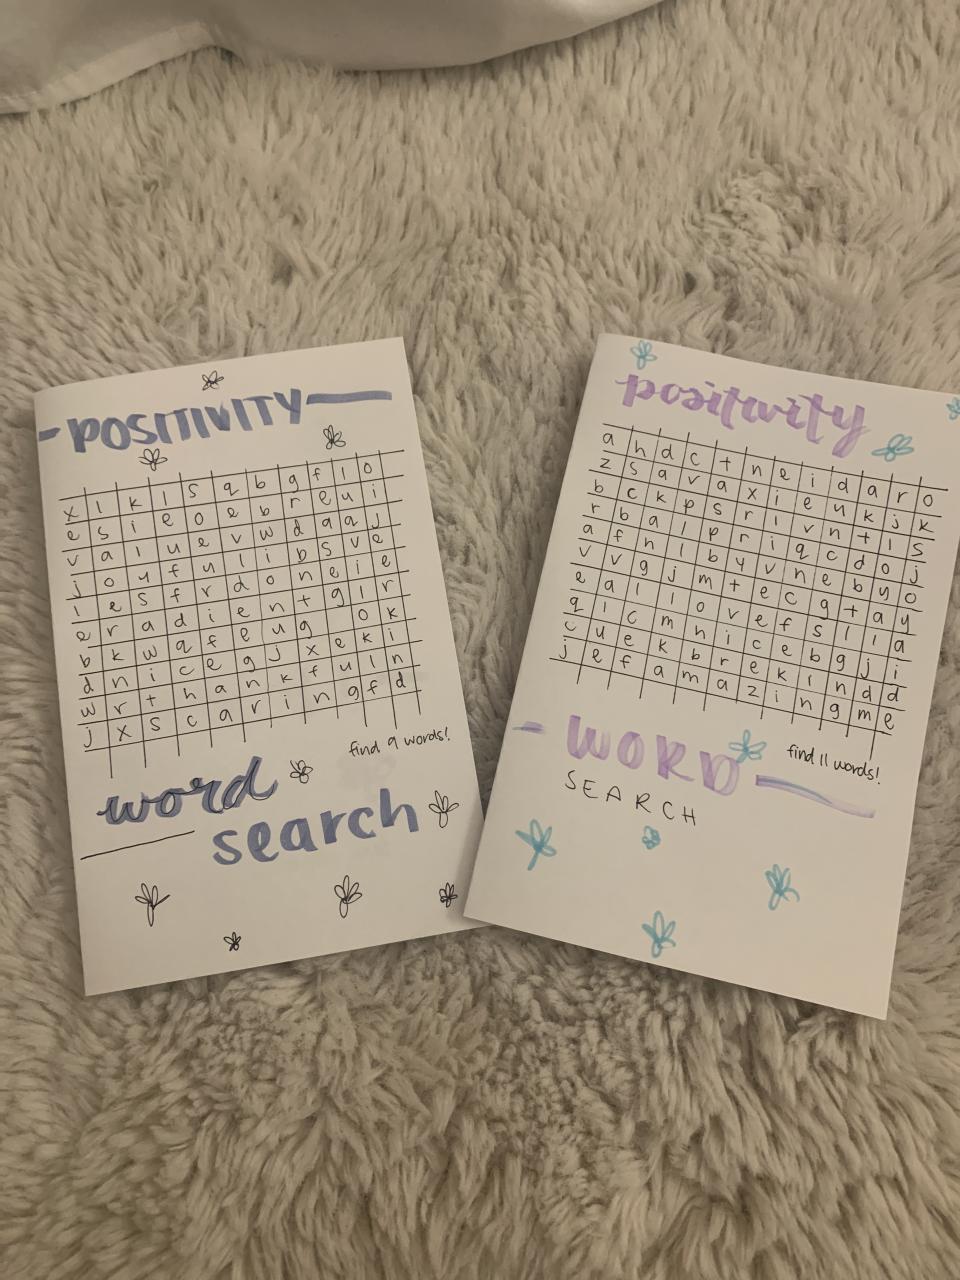 POSITIVITY
x l k l s q b g f l o
e s i e o e b r e u i
v a l u e v w d a q j
j o y f u l i b s v e
l e s f r d o n e i e
e r a d i e n t g l r
b k w q f e u g o k
d n i c e g j x e k i
w r t h a n k f u l n
j x s c a r i n g f d
find 9 words!
word
search
positivity
a h d c t n e i d a r o
z s a v a x i e u k j k
b c k p s r l v n t l s
r b a l p r i q c d o j
a f n l b y v h e b y o
v v g j m t e c g t a y
e a l l o v e f s l l a
q l c m n i c e b g j i
c u e k b r e k i n d d
j e f a m a z i n g m e
WORD
find 11 words!
SEARCH